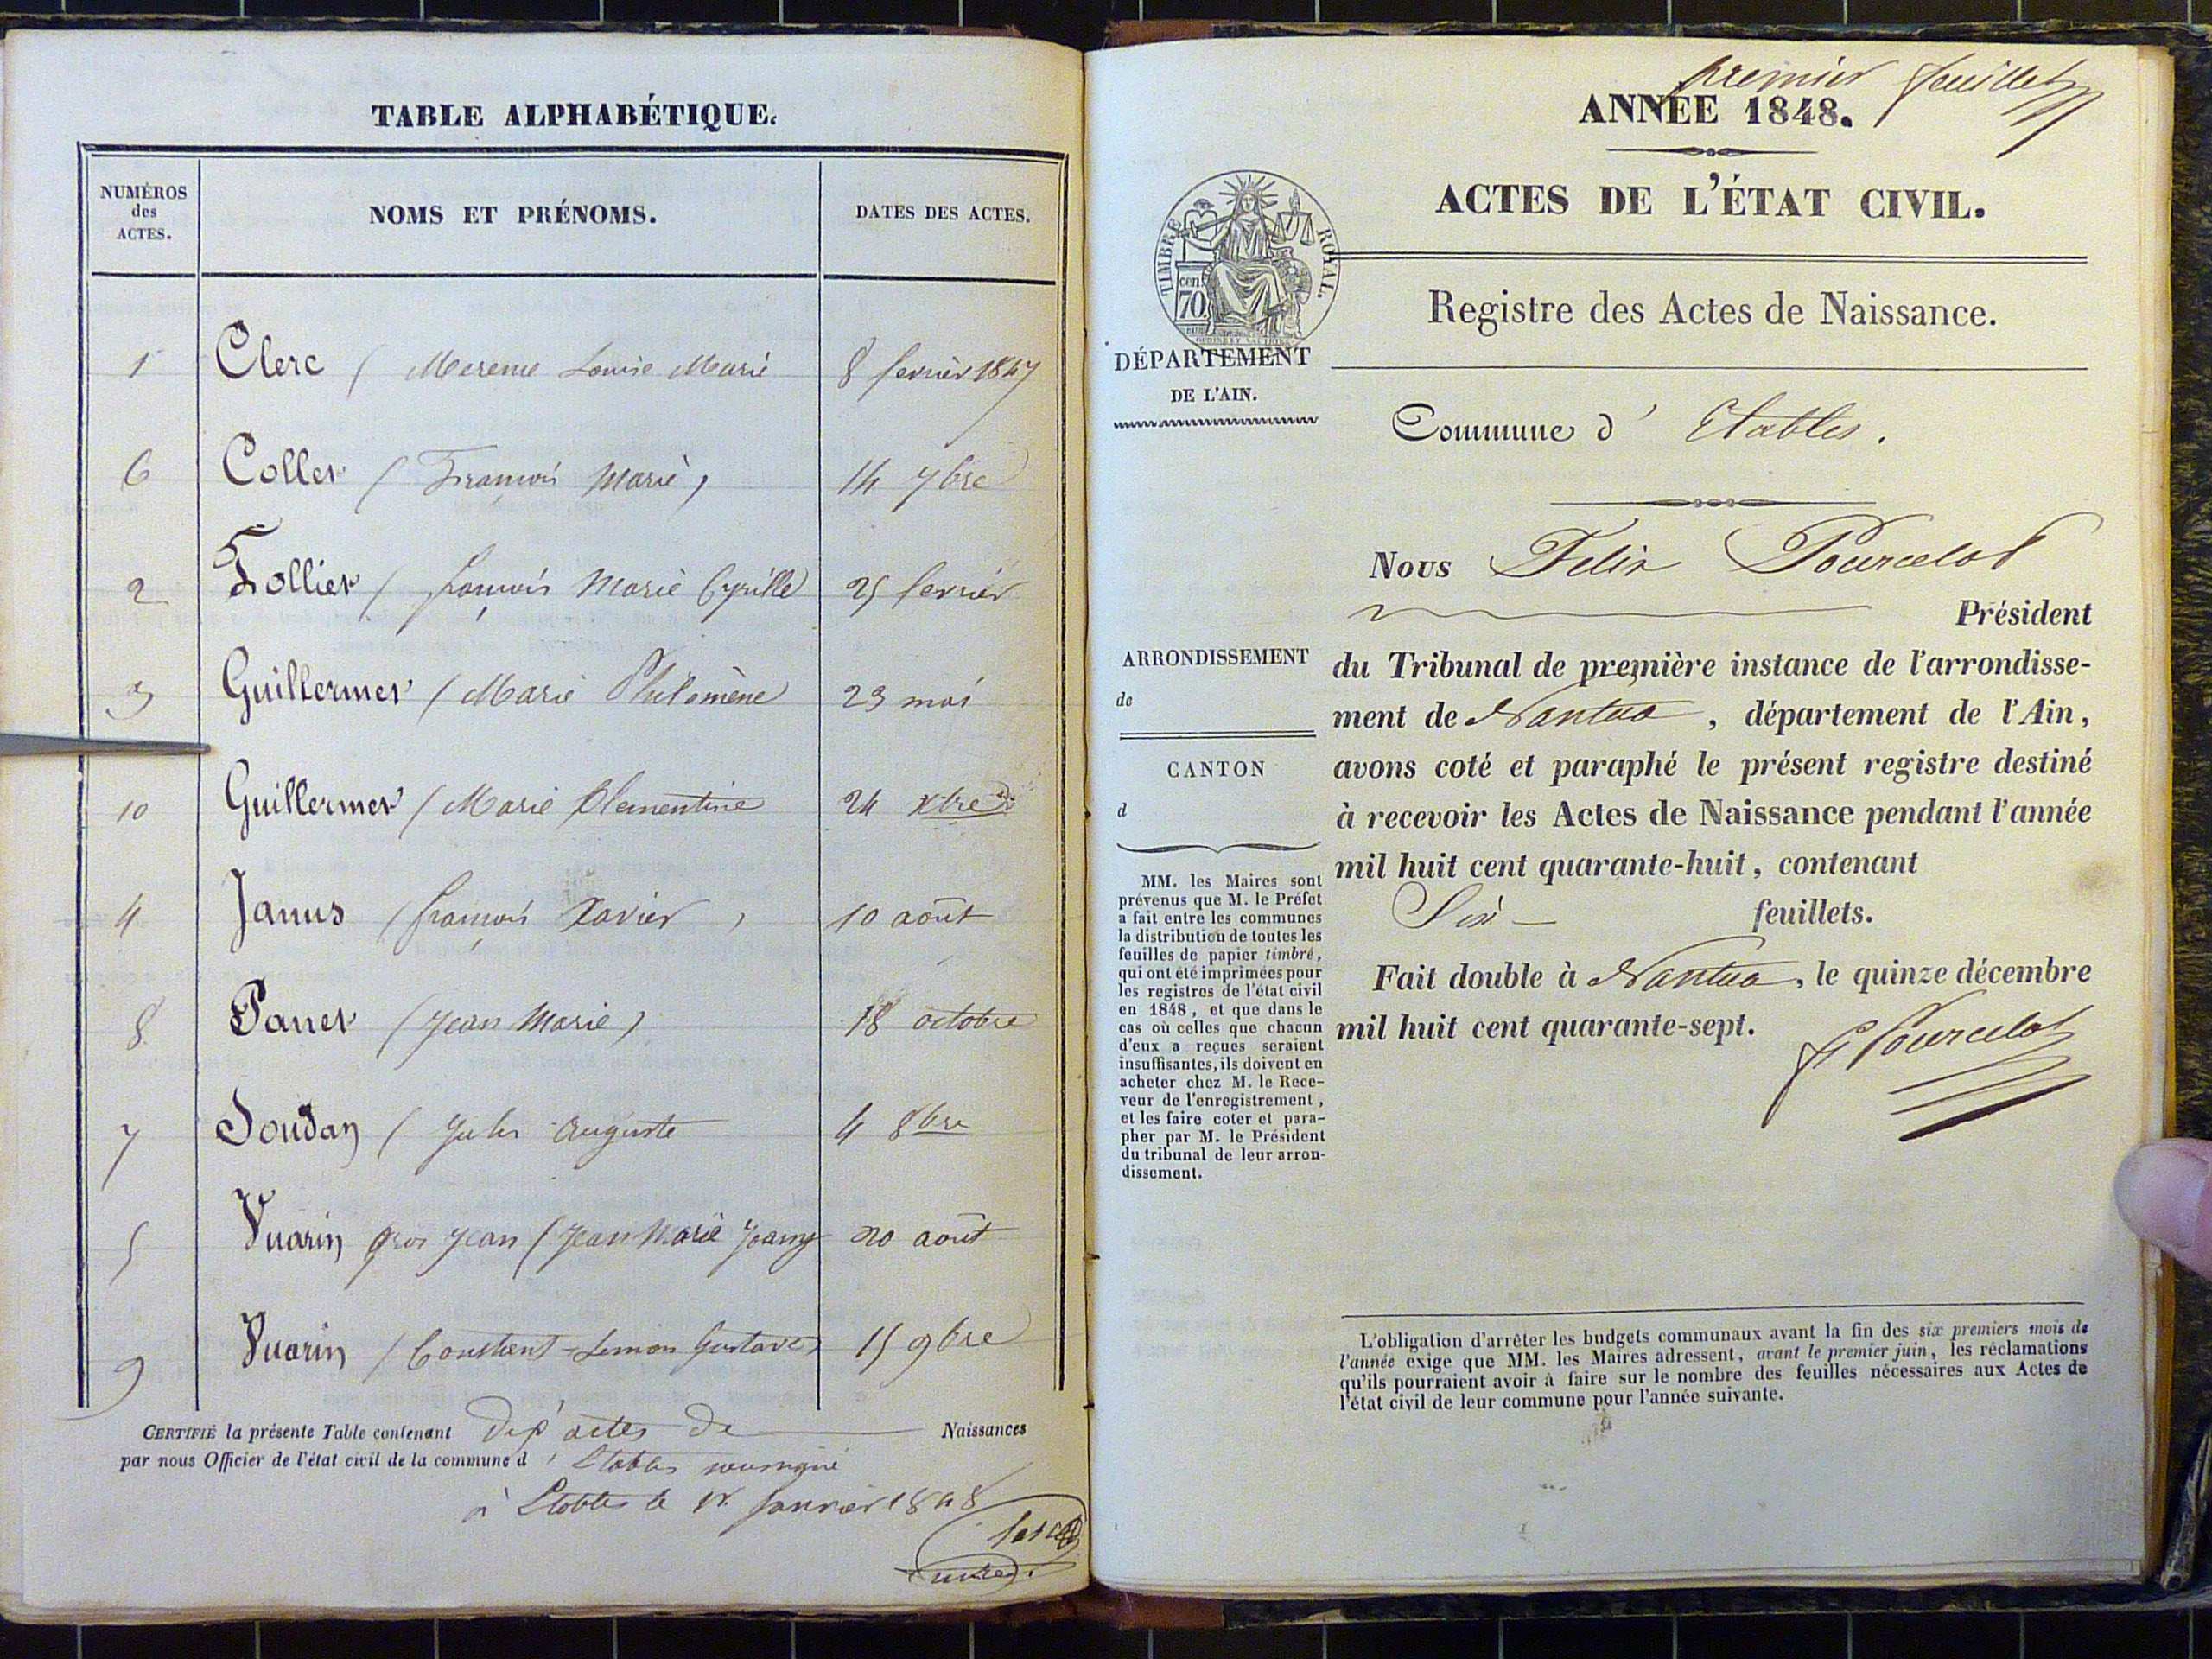 TABLE ALPHABÉTIQUE.
NUMÉROS des ACTES. NOMS ET PRÉNOMS. DATES DES ACTES.
1 Clerc ( Louise Marie 8 fevrier 1847
6 Collet ( François Marie ) 14 7bre
2 Follier ( françois Marie Cyrille 25 fevrier
3 Guillermet ( Marie Philomène 23 mai
10 Guillermet ( Marie Clementine 24 xbre
4 Janus ( françois Xavier ) 10 août
8 Panet ( Jean Marie ) 18 octobre
7 Soudan ( Jules Auguste 4 8bre
5 Vuarin gros Jean ( Jean Marie 20 août
9 Vuarin ( Constant Gustave ) 15 9bre
CERTIFIÉ la présente Table contenant dix actes de Naissances
par nous Officier de l'état civil de la commune d' Etables soussigné
à Etables le 1r. Janvier 1848
premier feuillet
ANNÉE 1848.
ACTES DE L'ÉTAT CIVIL.
TIMBRE ROYAL.
cen. 70
Registre des Actes de Naissance.
DÉPARTEMENT
DE L'AIN.
Commune d' Etables.
Nous Felix Pourcelot
Président
ARRONDISSEMENT
de
du Tribunal de première instance de l'arrondisse-
ment de Nantua, département de l'Ain,
CANTON
d
avons coté et paraphé le présent registre destiné
à recevoir les Actes de Naissance pendant l'année
mil huit cent quarante-huit, contenant
Six feuillets.
Fait double à Nantua, le quinze décembre
mil huit cent quarante-sept.
F. Pourcelot
MM. les Maires sont
prévenus que M. le Préfet
a fait entre les communes
la distribution de toutes les
feuilles de papier timbré,
qui ont été imprimées pour
les registres de l'état civil
en 1848, et que dans le
cas où celles que chacun
d'eux a reçues seraient
insuffisantes, ils doivent en
acheter chez M. le Rece-
veur de l'enregistrement,
et les faire coter et para-
pher par M. le Président
du tribunal de leur arron-
dissement.
L'obligation d'arrêter les budgets communaux avant la fin des six premiers mois de
l'année exige que MM. les Maires adressent, avant le premier juin, les réclamations
qu'ils pourraient avoir à faire sur le nombre des feuilles nécessaires aux Actes de
l'état civil de leur commune pour l'année suivante.